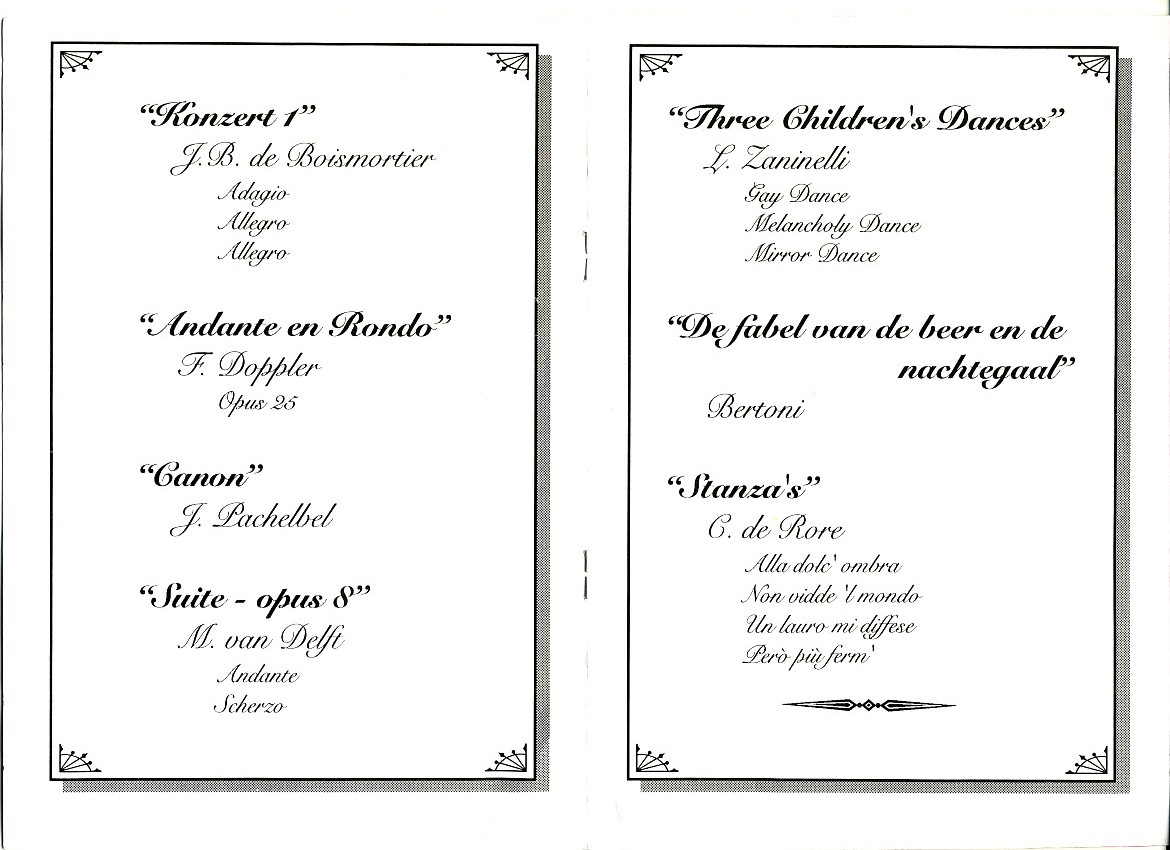 “Konzert 1”
J.B. de Boismortier
Adagio
Allegro
Allegro
“Andante en Rondo”
F. Doppler
Opus 25
“Canon”
J. Pachelbel
“Suite - opus 8”
M. van Delft
Andante
Scherzo
“Three Children's Dances”
L. Zaninelli
Gay Dance
Melancholy Dance
Mirror Dance
“De fabel van de beer en de
nachtegaal”
Bertoni
“Stanza's”
C. de Rore
Alla dolc' ombra
Non vidde 'l mondo
Un lauro mi diffese
Però più ferm'